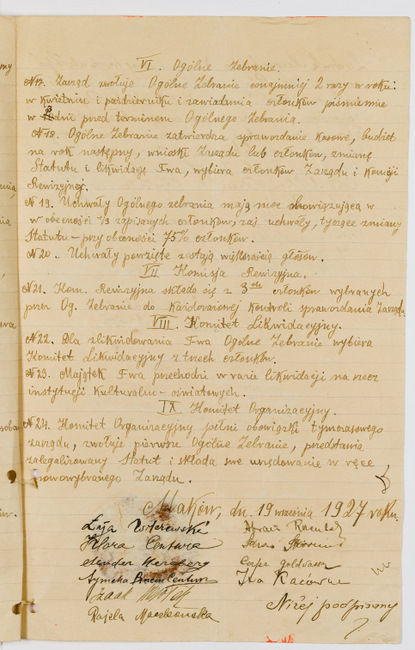 VI. Ogólne Zebranie.
№17. Zarząd zwołuje Ogólne Zebranie conajmniej 2 razy w roku:
w kwietniu i październiku i zawiadamia członków piśmiennie
w dni przed terminem Ogólnego Zebrania.
№18. Ogólne Zebranie zatwierdza sprawozdanie kasowe, budżet
na rok następny, wnioski Zarządu lub członków, zmianę
Statutu i likwidację Twa, wybiera członków Zarządu i Komisji
Rewizyjnej.
№19. Uchwały Ogólnego zebrania mają moc obowiązującą
w obecności 1/3 zapisanych członków, zaś uchwały, tyczące zmiany
Statutu – przy obecności 75% członków.
№20. Uchwały powzięte zostają większością głosów.
VII Komisja Rewizyjna.
№21. Kom. Rewizyjna składa się z 3-ch członków wybranych
przez Og. Zebranie do każdorazowej kontroli sprawozdania Zarządu
VIII. Komitet Likwidacyjny.
№22. Dla zlikwidowania Twa Ogólne Zebranie wybiera
Komitet Likwidacyjny z trzech członków.
№23. Majątek Twa przechodzi w razie likwidacji na rzecz
instytucji Kulturalno-oświatowych.
IX Komitet Organizacyjny.
№24. Komitet Organizacyjny pełni obowiązki tymczasowego
zarządu, zwołuje pierwsze Ogólne Zebranie, przedstawia
zalegalizowany Statut i składa swe urzędowanie w ręce
nowowybranego Zarządu.
Maków, dn. 19 września 1927 roku.
Niżej podpisany